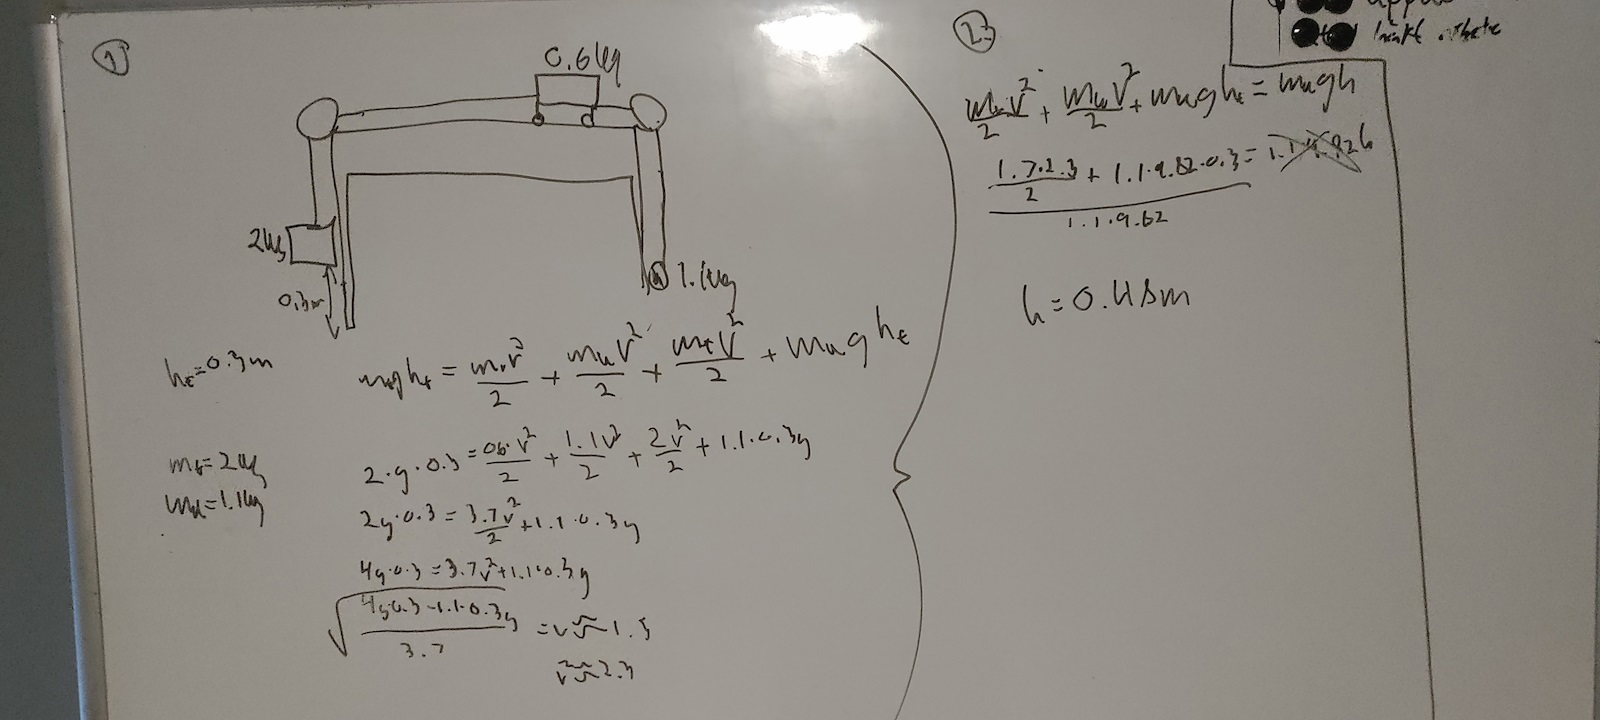 1)
0.6kg
2kg
0.3m
1.1kg
h_t=0.3m
m_t=2kg
m_u=1.1kg
m_t g h_t = m_v v²/2 + m_u v²/2 + m_t v²/2 + m_u g h_t
2·g·0.3 = 0.6·v²/2 + 1.1v²/2 + 2v²/2 + 1.1·0.3g
2g·0.3 = 3.7v²/2 + 1.1·0.3g
4g·0.3 = 3.7v² + 1.1·0.3g
√((4g0.3-1.1·0.3g)/3.7) = v ≈ 1.5
v² ≈ 2.3
2)
m_v v²/2 + m_u v²/2 + m_u g h_t = m_u g h
1.7·2.3/2 + 1.1·9.82·0.3 =
1.1·9.82
h=0.48m